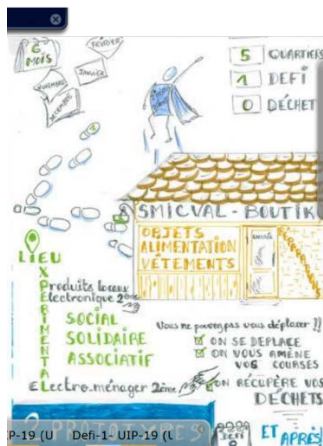 6
MOIS
FÉVRIER
JANVIER
NOVEMBRE
DÉCEMBRE
5 QUARTIERS
1 DEFI
0 DÉCHET
SMICVAL - BOUTIK
OBJETS
ALIMENTATION
VÊTEMENTS
LIEU
EXPERIMENTAL
Produits locaux
Electronique 2ème
SOCIAL
SOLIDAIRE
ASSOCIATIF
Electro.ménager 2ème
Vous ne pouvez pas vous déplacer ??
ON SE DEPLACE
ON VOUS AMÈNE
VOS COURSES
ON RÉCUPÈRE VOS
DÉCHETS
PROTOTYPE
DEFI
ET APRÈS
P-19 (U Defi-1- UIP-19 (U